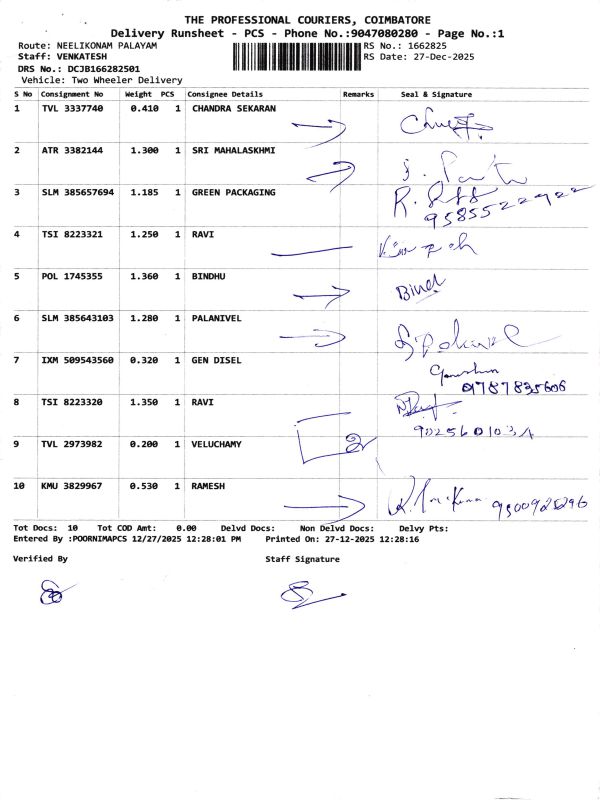 THE PROFESSIONAL COURIERS, COIMBATORE
Delivery Runsheet - PCS - Phone No.:9047080280 - Page No.:1
Route: NEELIKONAM PALAYAM RS No.: 1662825
Staff: VENKATESH RS Date: 27-Dec-2025
DRS No.: DCJB166282501
Vehicle: Two Wheeler Delivery
S No Consignment No Weight PCS Consignee Details Remarks Seal & Signature
1 TVL 3337740 0.410 1 CHANDRA SEKARAN
2 ATR 3382144 1.300 1 SRI MAHALASKHMI
3 SLM 385657694 1.185 1 GREEN PACKAGING
9585522922
4 TSI 8223321 1.250 1 RAVI
5 POL 1745355 1.360 1 BINDHU
Bindh
6 SLM 385643103 1.280 1 PALANIVEL
7 IXM 509543560 0.320 1 GEN DISEL
9787835606
8 TSI 8223320 1.350 1 RAVI
9 TVL 2973982 0.200 1 VELUCHAMY
2
10 KMU 3829967 0.530 1 RAMESH
Tot Docs: 10 Tot COD Amt: 0.00 Delvd Docs: Non Delvd Docs: Delvy Pts:
Entered By :POORNIMAPCS 12/27/2025 12:28:01 PM Printed On: 27-12-2025 12:28:16
Verified By Staff Signature